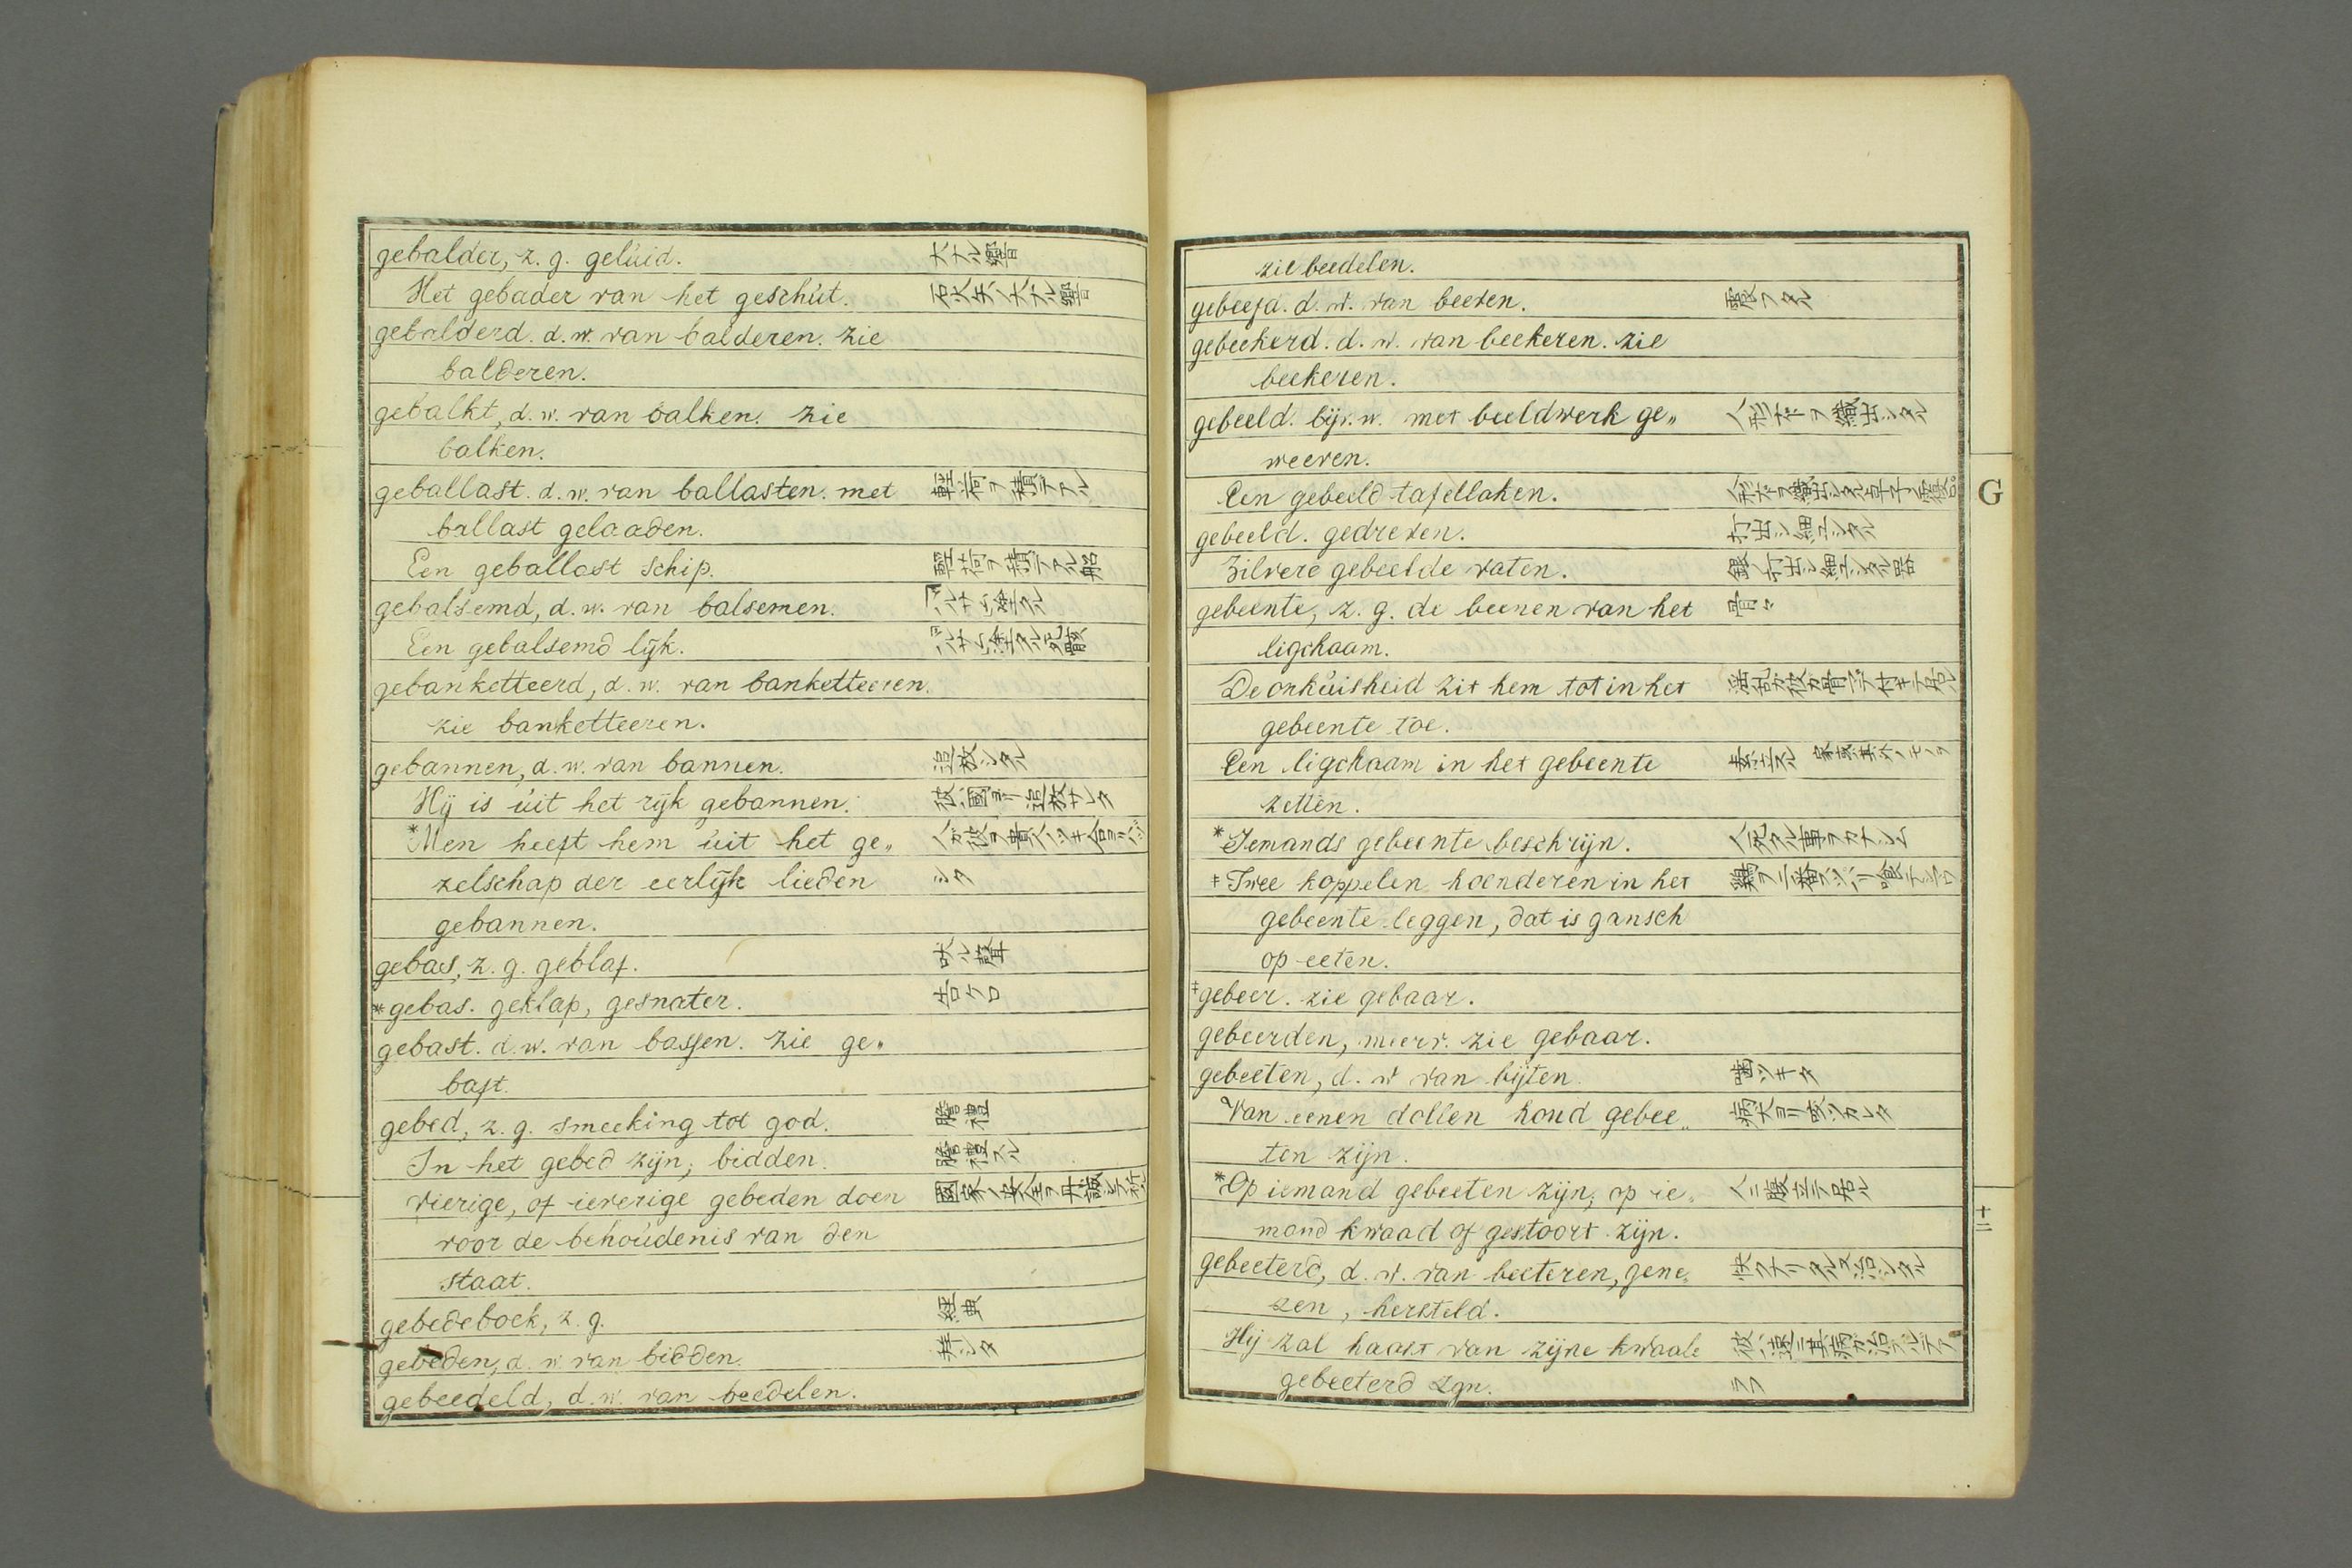 gebalder, z. g. gelúid. 大ナル響
Het gebader van het geschút. 石火矢ノ大ナル響
gebalderd. d. w. van balderen. zie
balderen.
gebalkt, d. w. van balken. zie
balken.
geballast. d. w. van ballasten. met 軽荷ヲ積テアル
ballast gelaaden.
Een geballast schip. 軽荷ヲ積テアル船
gebalsemd, d. w. van balsemen.
Een gebalsemd lijk.
gebanketteerd, d. w. van banketteeren.
zie banketteeren.
gebannen, d. w. van bannen. 追放シタル
Hij is úit het rijk gebannen. 彼ハ國ヨリ追放サレタ
*Men heeft hem úit het ge„
zelschap der eerlijk lieden シタ
gebannen.
gebas, z. g. geblaf. 吠ル聲
*gebas. geklap, gesnater. 告ケ口
gebast. d. w. van bassen. zie ge„
bast.
gebed, z. g. smeeking tot god. 膽禮
In het gebed zijn, bidden. 膽禮スル
vierige, of ieverige gebeden doen
voor de behoúdenis van den
staat.
gebedeboek, z. g. 経典
gebeden, d. w. van bidden. 拝シタ
gebeedeld, d. w. van beedelen.
zie beedelen.
gebeefd. d. w. van beeven. 震フタル
gebeekerd. d. w. van beekeren. zie
beekeren.
gebeeld. bijv. w. met beeldwerk ge„ 人形抔ヲ織出シタル
weeven.
Een gebeeld tafellaken.
gebeeld. gedreven.打出シ細工シタル
Zilvere gebeelde vaten. 銀ノ打出シ細工シタル器
gebeente, z. g. de beenen van het 骨
ligchaam.
De onkúisheid zit hem tot in het
gebeente toe.
Een ligchaam in het gebeente
zetten.
*Iemands gebeente beschrijn.
‡Twee koppelen hoenderen in het
gebeente leggen, dat is gansch
op eeten.
‡gebeer. zie gebaar.
gebeerden, meerv. zie gebaar.
gebeeten, d. w van bijten. 噛ツキタ
Van eenen dollen hond gebee„ 病犬ヨリ噬ツカレタ
ten zijn.
*Op iemand gebeeten zijn, op ie„ 人ニ腹立テ居ル
mand kwaad of gestoort zijn.
gebeeterd, d. w. van beeteren, gene„ 快クナリタル又治シタル
zen, hersteld.
Hij zal haast van zijne kwaale 彼ハ速ニ其病カ治スルテア
gebeeterd zijn. ラフ
G
十二